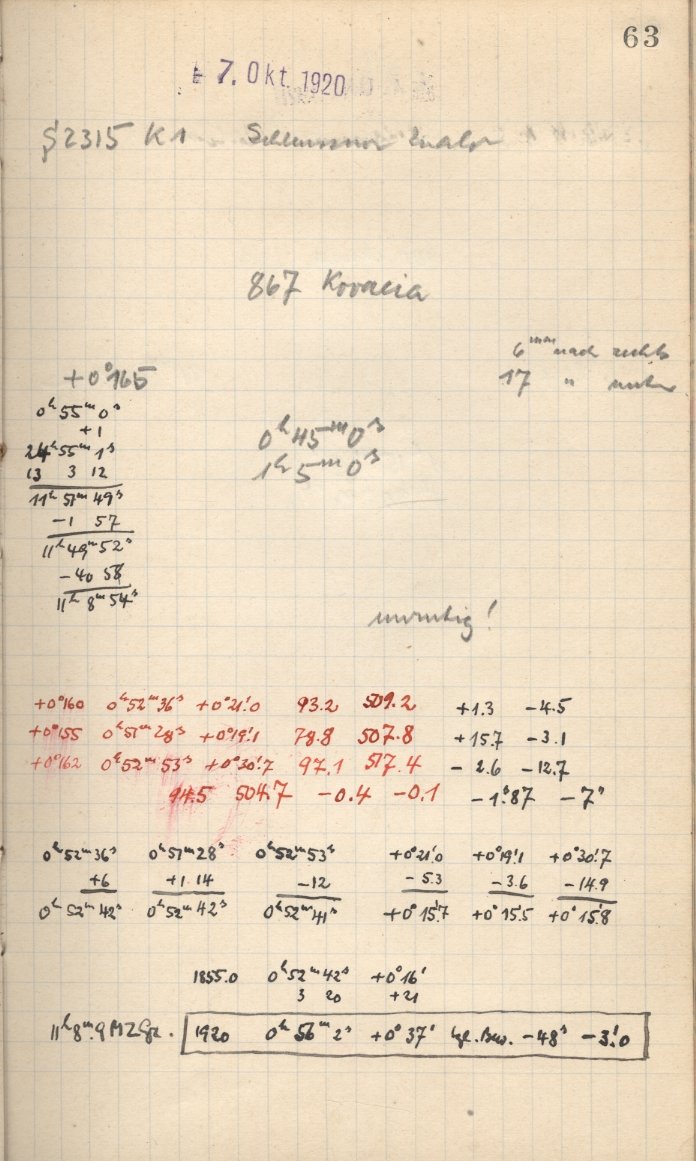 63
7. Okt. 1920
§2315 K1
867 Kovacia
6ᵐᵐ nach rechts
+0°165
17 "
0ʰ 55ᵐ 0ˢ
+1
24ʰ 55ᵐ 1ˢ
13 3 12
11ʰ 51ᵐ 49ˢ
-1 57
11ʰ 49ᵐ 52ˢ
-40 58
11ʰ 8ᵐ 54ˢ
0ʰ 45ᵐ 0ˢ
1ʰ 5ᵐ 0ˢ
unruhig!
+0°160 0ʰ 52ᵐ 36ˢ +0°21'.0 93.2 509.2 +1.3 -4.5
+0°155 0ʰ 51ᵐ 28ˢ +0°19'.1 78.8 507.8 +15.7 -3.1
+0°162 0ʰ 52ᵐ 53ˢ +0°30'.7 97.1 517.4 -2.6 -12.7
94.5 504.7 -0.4 -0.1 -1ˢ.87 -7"
0ʰ 52ᵐ 36ˢ 0ʰ 51ᵐ 28ˢ 0ʰ 52ᵐ 53ˢ +0°21'.0 +0°19'.1 +0°30'.7
+6 +1 14 -12 -5.3 -3.6 -14.9
0ʰ 52ᵐ 42ˢ 0ʰ 52ᵐ 42ˢ 0ʰ 52ᵐ 41ˢ +0°15'.7 +0°15'.5 +0°15'.8
1855.0 0ʰ 52ᵐ 42ˢ +0°16'
3 20 +21
11ʰ 8ᵐ.9 MZGr. 1920 0ʰ 56ᵐ 2ˢ +0°37' tgl. Bew. -48ˢ -3'.0